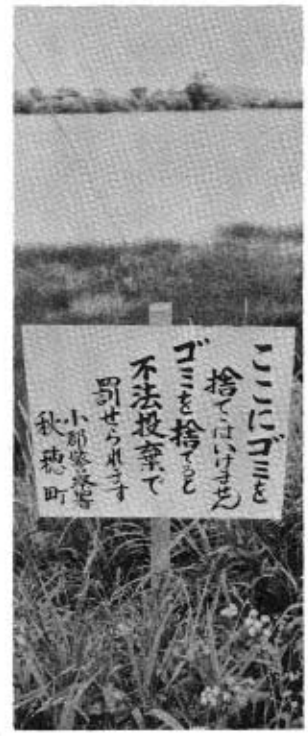 ここにゴミを
捨てはいけません
ゴミを捨てると
不法投棄で
罰せられます
小郡警察署
秋穂町